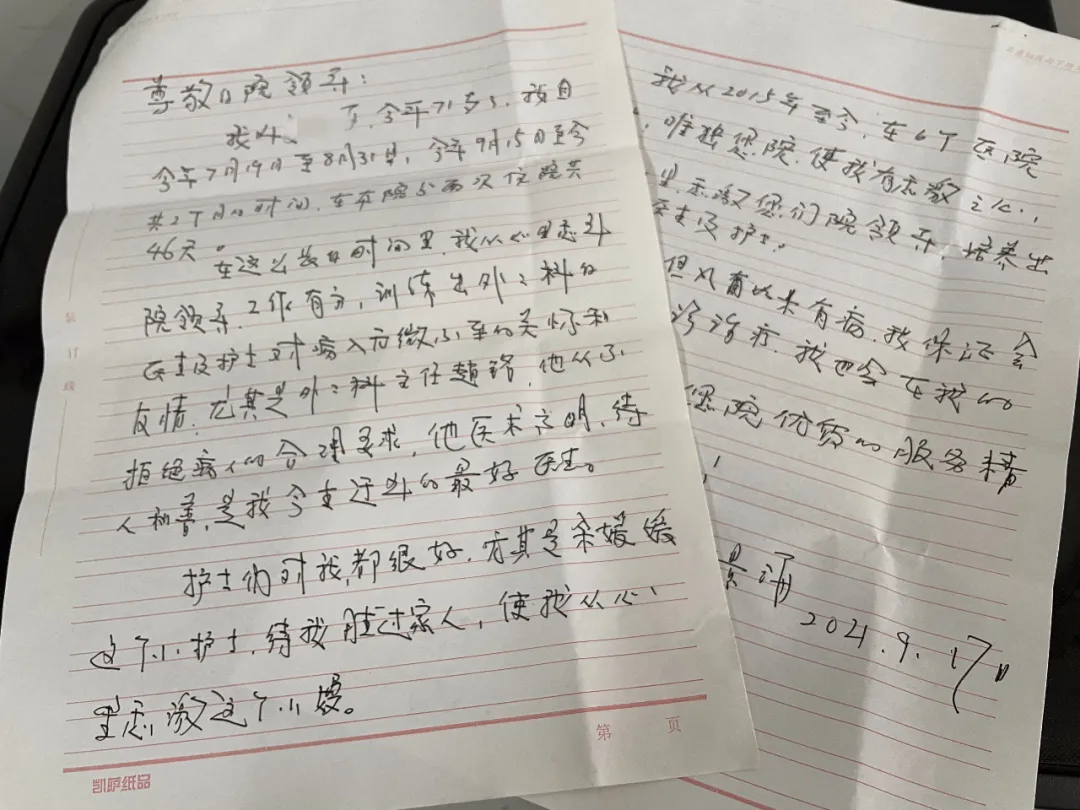 尊敬的院领导：
我叫 了，今年71岁了，我自
今年7月19日至8月31日，今年9月15日至今
共2个月的时间，在本院分两次住院共
46天。
在这么长的时间里，我从心里感到
院领导，工作有方，训练出外二科的
医生及护士对病人无微不至的关怀和
友情，尤其是外二科主任赵铭，他从不
拒绝病人的合理要求，他医术高明，待
人和善，是我今生遇到的最好医生。
护士们对我都很好，尤其是 媛媛
这个小护士，待我胜过家人，使我从心
里感激这个小媛。
装
订
线
第 页
凯萨纸品
我从2015年至今，在6个医院
，唯独您院，使我有感激之心，
里感激您们院领导，培养出
医生及护士。
但凡有以来有病，我保证会
诊治疗，我也会在我的
您院优质的服务精
！
景
2021.9.17日